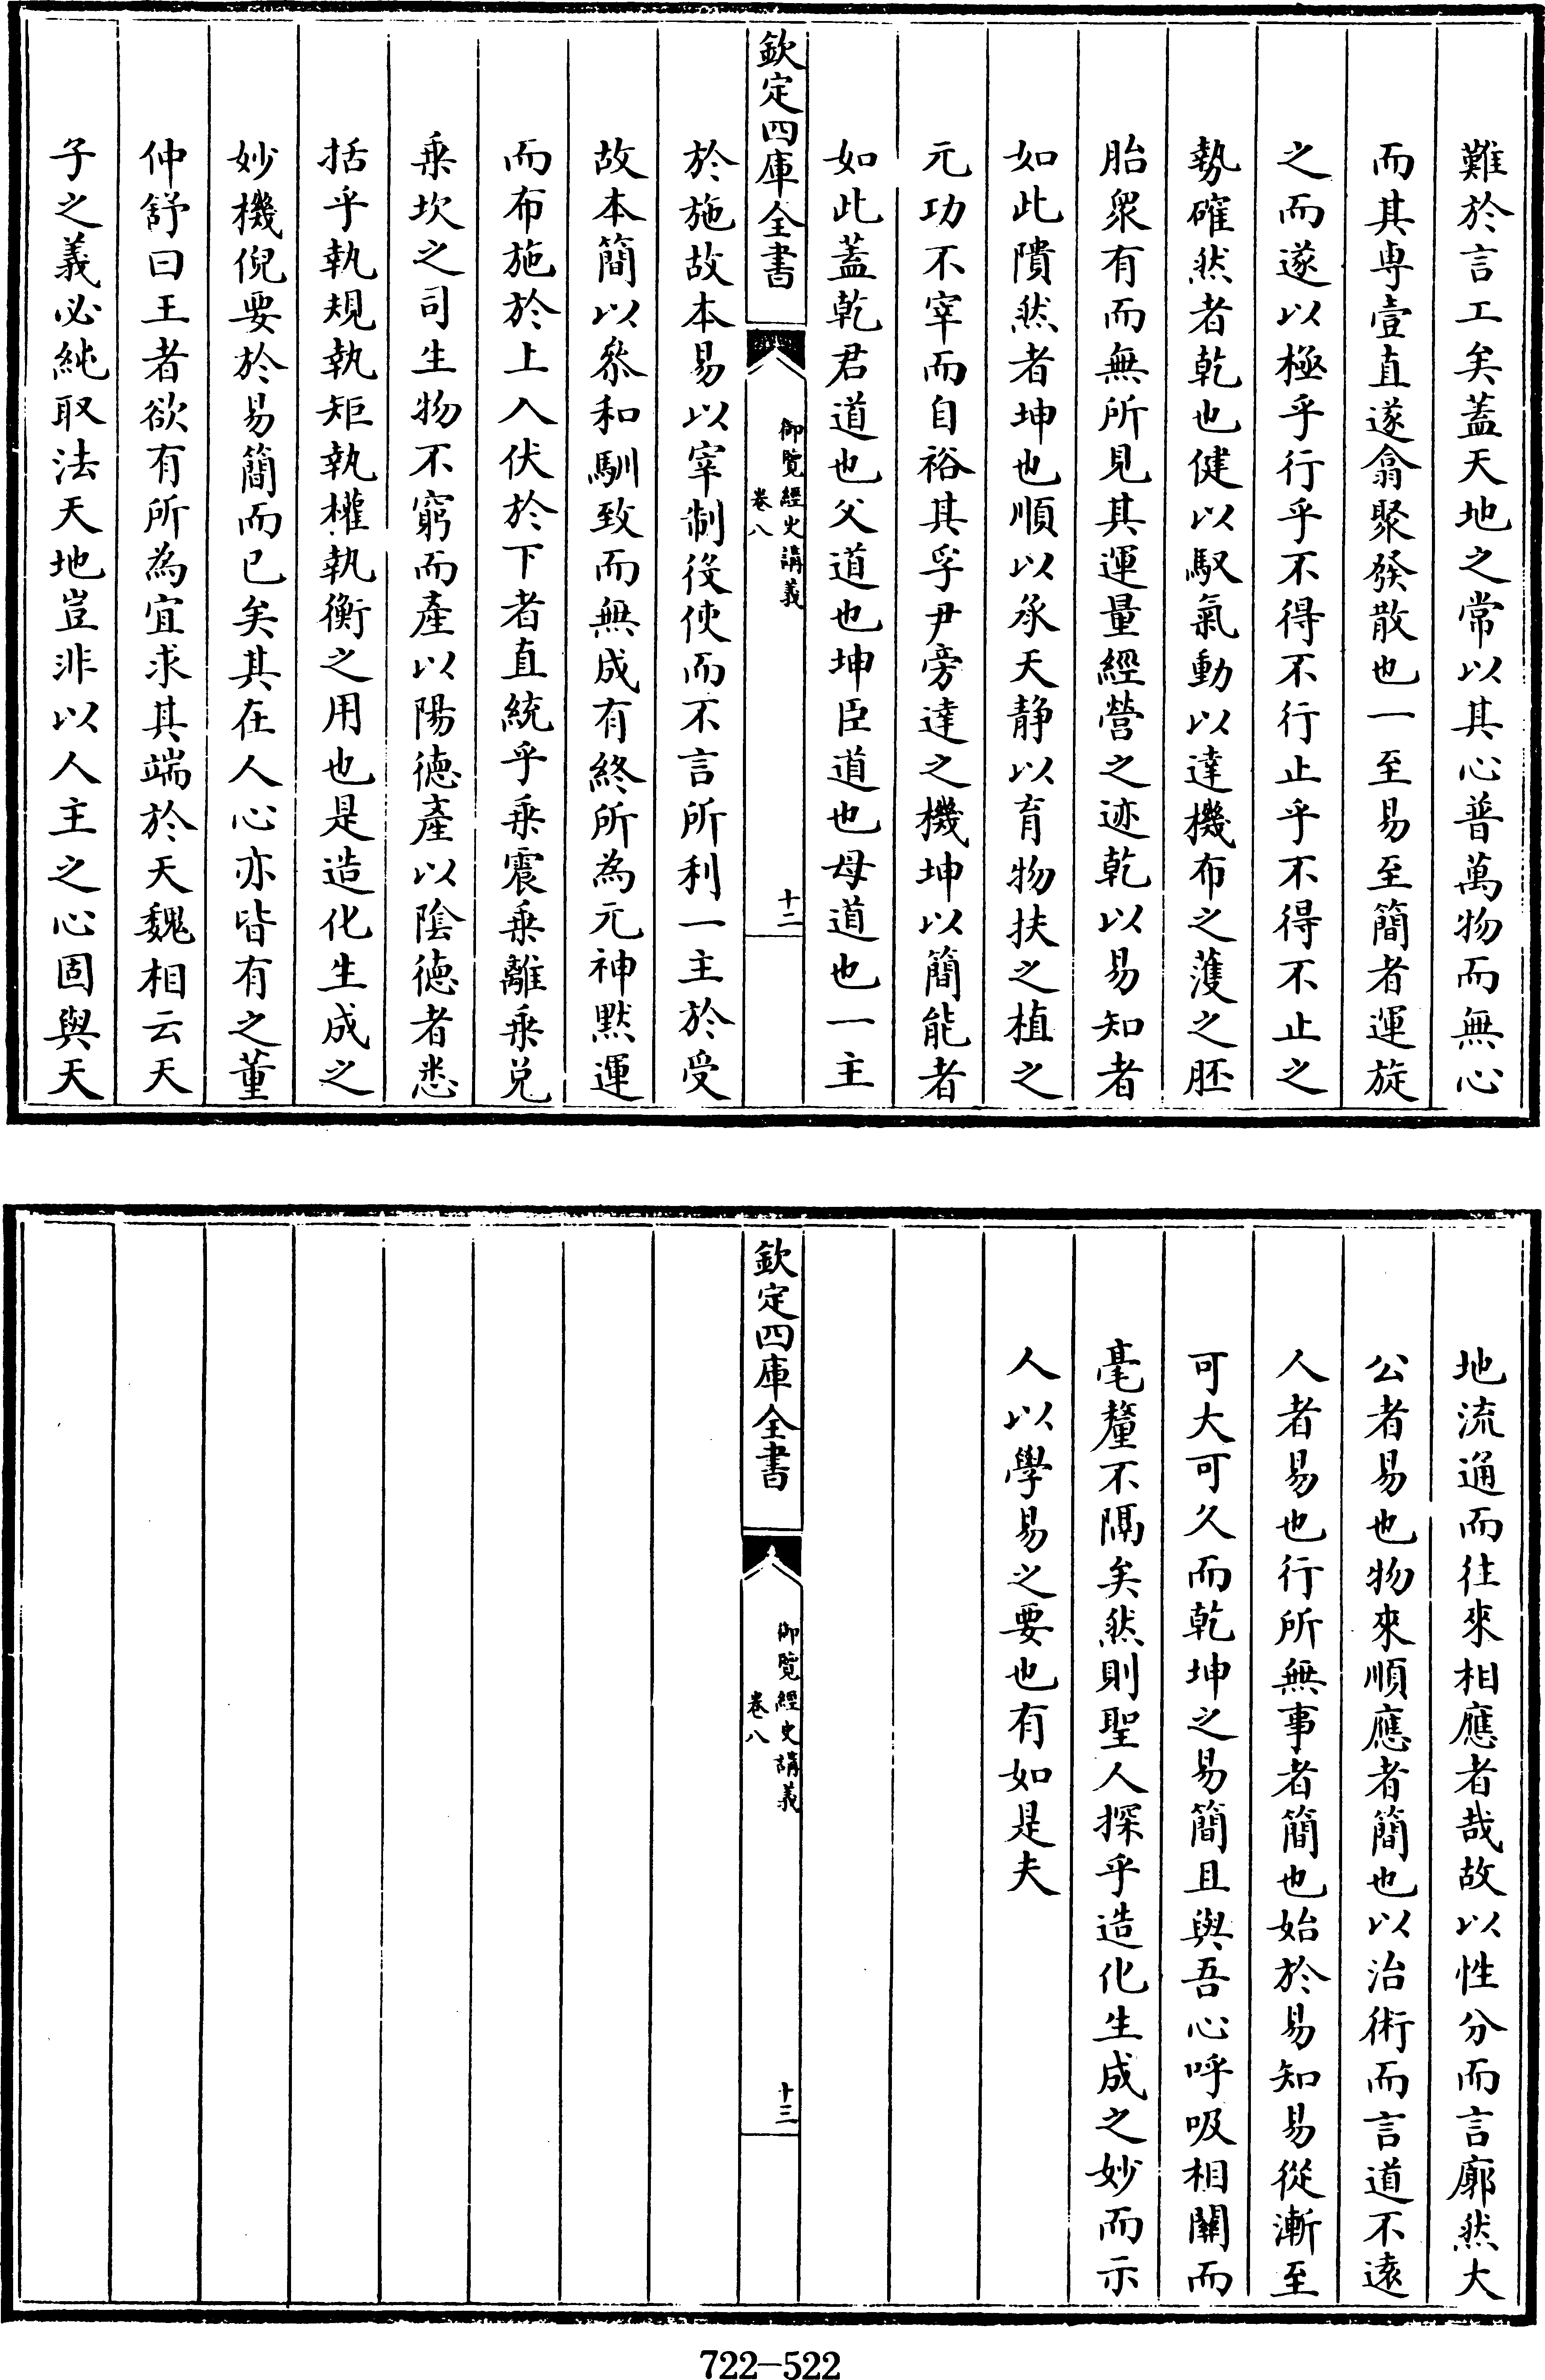 難於言工矣蓋天地之常以其心普萬物而無心
而其専壹直遂翕聚發散也一至易至簡者運旋
之而遂以極乎行乎不得不行止乎不得不止之
勢確然者乾也健以馭氣動以達機布之蒦之胚
胎眾有而無所見其運量經營之迹乾以易知者
如此隤然者坤也順以承天靜以育物扶之植之
元功不宰而自裕其孚尹旁達之機坤以簡能者
如此蓋乾君道也父道也坤臣道也母道也一主
欽定四庫全書
御覽經史講義
卷八
十二
於施故本易以宰制役使而不言所利一主於受
故本簡以叅和馴致而無成有終所為元神默運
而布施於上入伏於下者直統乎乘震乘離乘兌
乘坎之司生物不窮而產以陽德產以陰德者悉
括乎執規執矩執權執衡之用也是造化生成之
妙機倪要於易簡而已矣其在人心亦皆有之董
仲舒曰王者欲有所為宜求其端於天魏相云天
子之義必純取法天地豈非以人主之心固與天
地流通而往來相應者哉故以性分而言廓然大
公者易也物來順應者簡也以治術而言道不遠
人者易也行所無事者簡也始於易知易從漸至
可大可久而乾坤之易簡且與吾心呼吸相關而
毫釐不隔矣然則聖人探乎造化生成之妙而示
人以學易之要也有如是夫
欽定四庫全書
御覽經史講義
卷八
十三
722-522